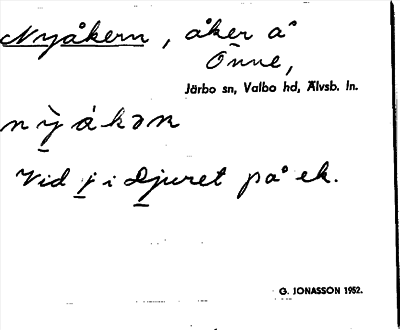 Nyåkern, åker å
Önne,
Järbo sn, Valbo hd, Älvsb. ln.
nỳåkən
Vid j i Djuret på ek.
G. JONASSON 1952.